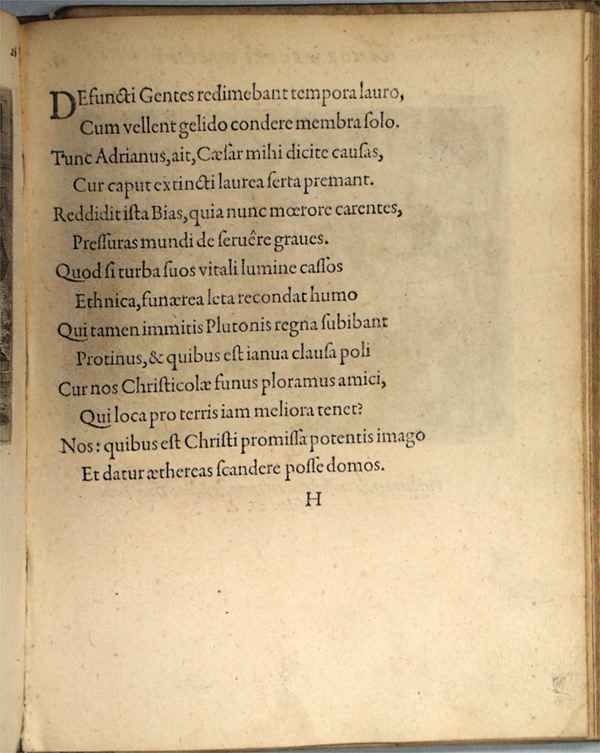 DEfuncti Gentes redimebant tempora lauro,
Cum vellent gelido condere membra solo.
Tunc Adrianus, ait, Cæsar mihi dicite causas,
Cur caput extincti laurea serta premant.
Reddidit ista Bias, quia nunc mœrore carentes,
Pressuras mundi de seruêre graues.
Quod si turba suos vitali lumine cassos
Ethnica, funærea leta recondat humo
Qui tamen immitis Plutonis regna subibant
Protinus, & quibus est ianua clausa poli
Cur nos Christicolæ funus ploramus amici,
Qui loca pro terris iam meliora tenet?
Nos: quibus est Christi promissa potentis imago
Et datur æthereas scandere posse domos.
H